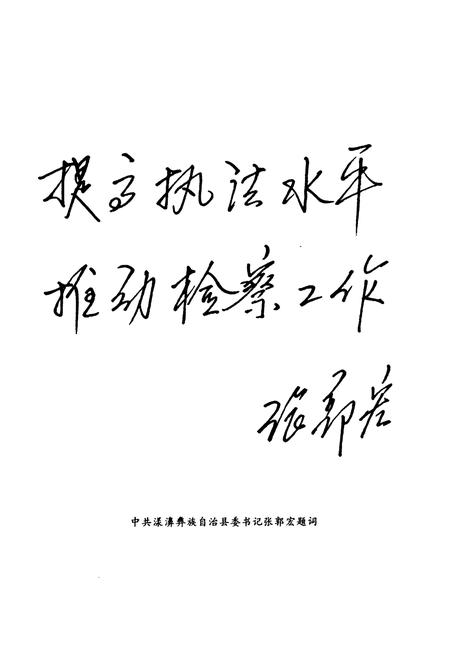 提高执法水平
推动检察工作
张郭宏
中共漾濞彝族自治县委书记张郭宏题词